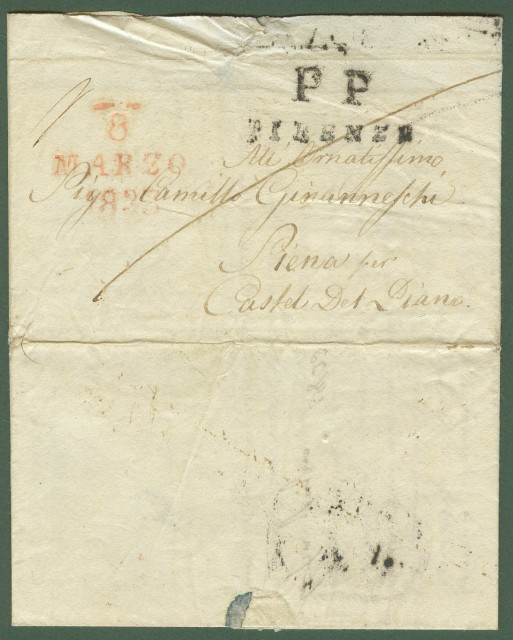 P P
FIRENZE
8
MARZO
All' Ornatissimo
Sig. Camillo Giovanneschi
Siena per
Castel Del Piano.